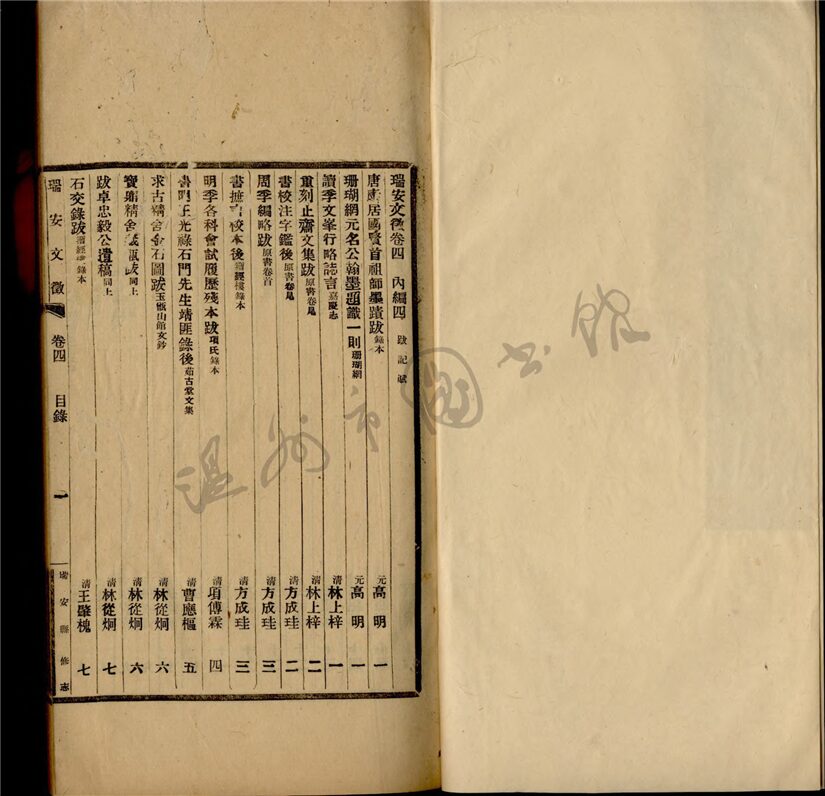 瑞安文徵卷四 內編四 跋記誠
唐書居國賢首祖師墨蹟跋 錄本 元 高明 一
珊瑚網元名公翰墨題識一則 珊瑚網 元 高明 一
讀季文峯行略誌言 嘉慶志 清 林上梓 一
重刻止齋文集跋 原書卷尾 清 林上梓 二
書校注字鑑後 原書卷尾 清 方成珪 二
周季編略跋 原書卷首 清 方成珪 三
書摭言校本後 經樓錄本 清 方成珪 三
明季各科會試履歷殘本跋 項氏錄本 清 項傅霖 四
書明王光祿石門先生靖匪錄後 茹古堂文集 清 曹應樞 五
求古精舍金石圖跋 玉甑山館文鈔 清 林從炯 六
寶 精舍 跋 同上 清 林從炯 六
跋卓忠毅公遺稿 同上 清 林從炯 七
石交錄跋 經樓錄本 清 王肇槐 七
瑞安文徵 卷四 目錄 一 瑞安縣修志
溫州市圖书館